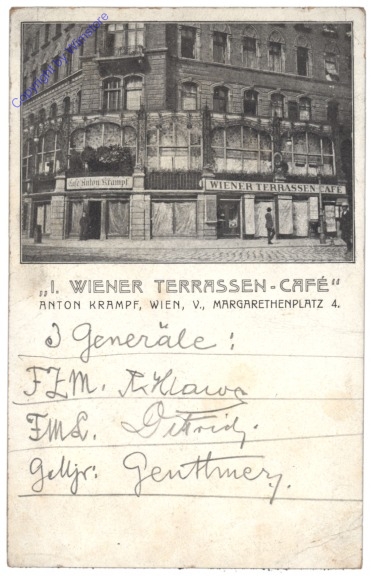 Copyright by wwstore
Café Anton Krampf
WIENER TERRASSEN CAFÉ
„I. WIENER TERRASSEN-CAFÉ“
ANTON KRAMPF, WIEN, V., MARGARETHENPLATZ 4.
3 Generäle:
FZM.
FML. Dittrich.
GeMjr: